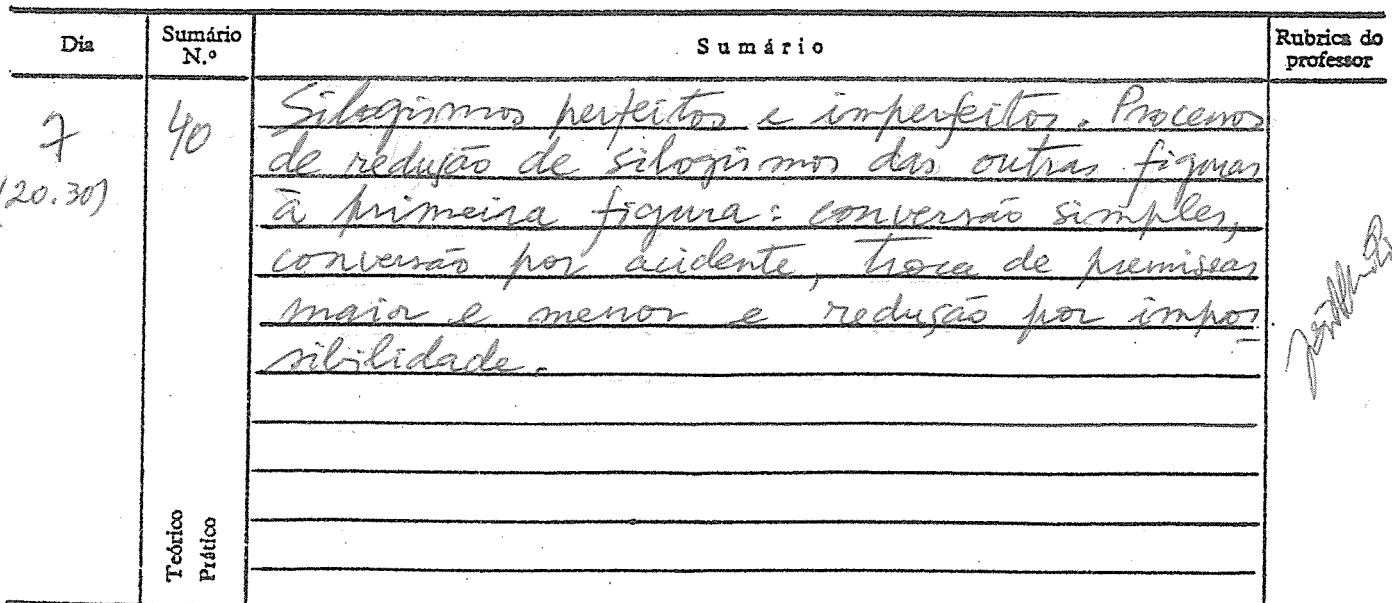 Dia Sumário N.º Sumário Rubrica do professor
7 40 Silogismos perfeitos e imperfeitos. Processos
(20.30) de redução de silogismos das outras figuras
à primeira figura: conversão simples,
conversão por acidente, troca de premissas
maior e menor e redução por impos
sibilidade.
Teórico
Prático